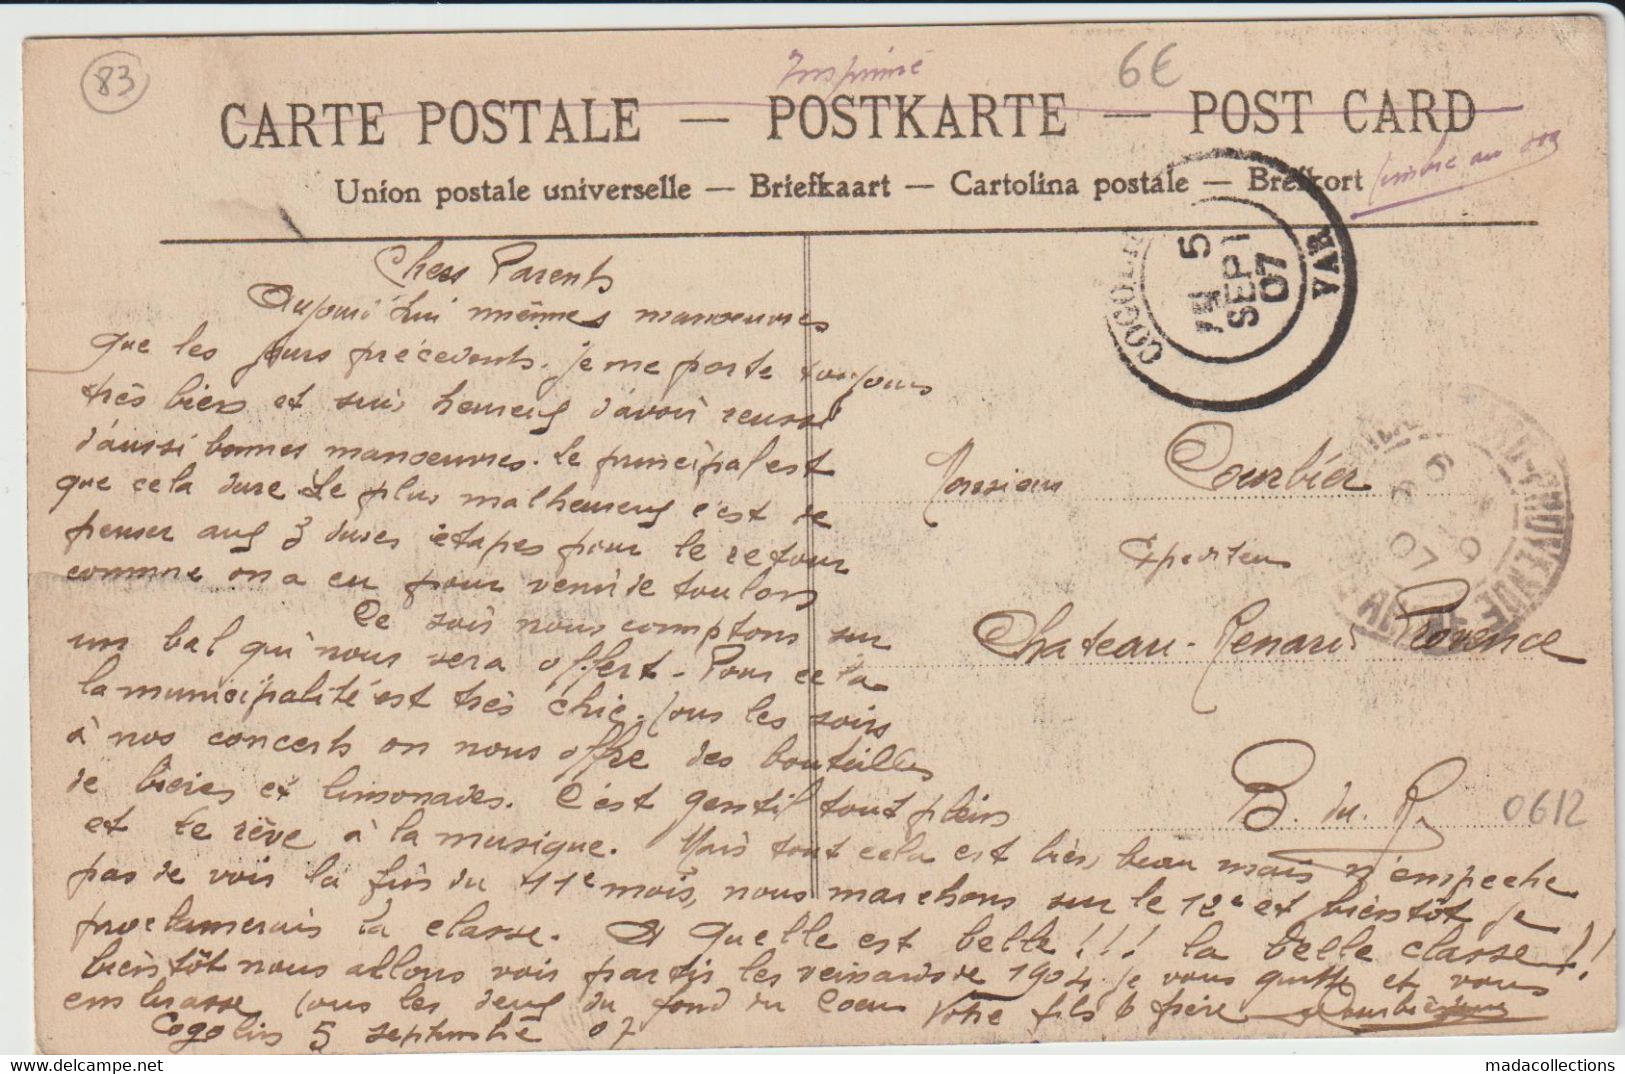 83
Imprimé
6€
CARTE POSTALE — POSTKARTE — POST CARD
timbre au dos
Union postale universelle — Briefkaart — Cartolina postale — Brefkort
COGOLIN
VAR
5
SEPT
07
Chers Parents
Aujourd'hui mêmes manoeuvres
que les jours précédents. je me porte toujours
très bien et suis heureux d'avoir reussi
d'aussi bonnes manoeuvres. Le principal est
que cela dure Le plus malheureux c'est de
penser aux 3 dures étapes pour le retour
comme on a eu pour venir de Toulon
Ce soir nous comptons sur
un bal qui nous sera offert. Pour cela
la municipalité est très chic. Tous les soirs
à nos concerts on nous offre des bouteilles
de bières et limonades. C'est gentil tout plein
et te rêve à la musique. Mais tout cela est bien beau mais n'empeche
pas de voir la fin du 11e mois, nous marchons sur le 12e et bientôt je
proclamerais la classe. Et quelle est belle!!! la belle classe!!
bientôt nous allons voir partir les veinards de 1904. je vous quitte et vous
embrasse tous les deux du fond du coeur Votre fils & frère
Cogolin 5 septembre 07
Monsieur Courbier
Expediteur
Chateau-Renard Provence
B. du R.
0612
madacollections